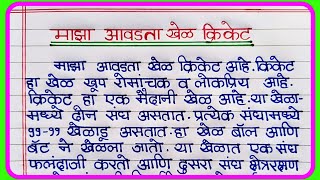 माझा आवडता खेळ क्रिकेट
माझा आवडता खेळ क्रिकेट आहे. क्रिकेट
हा खेळ खूप रोमांचक व लोकप्रिय आहे.
क्रिकेट हा एक मैदानी खेळ आहे. या खेळा-
मध्ये दोन संघ असतात. प्रत्येक संघामध्ये
११-११ खेळाडू असतात. हा खेळ बॉल आणि
बॅट ने खेळला जातो. या खेळात एक संघ
फलंदाजी करतो आणि दुसरा संघ क्षेत्ररक्षण